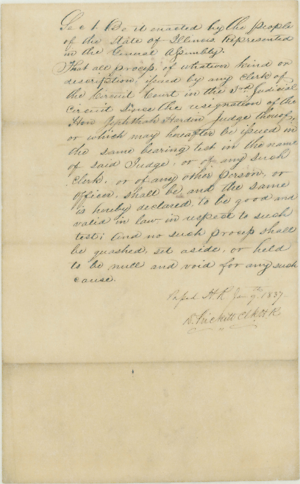 Sec 1 Be it enacted by the People
of the State of Illinois represented
in the General Assembly.
That all process of whatsoever kind or
description, issued by any Clerk of
the Circuit Court in the 3rd Judicial
Circuit since the resignation of the
Hon Jeptha Hardin Judge thereof,
or which may hereafter be issued in
the same bearing test in the name
of said Judge, or of any such
Clerk, or of any other person, or
officer, shall be and the same
is hereby declared to be good and
valid in law in respect to such
test; And no such process shall
be quashed, set aside, or held
to be null and void for any such
cause.
Passed H. R. Jany 9th 1837.
D. Prickett Clk H R.